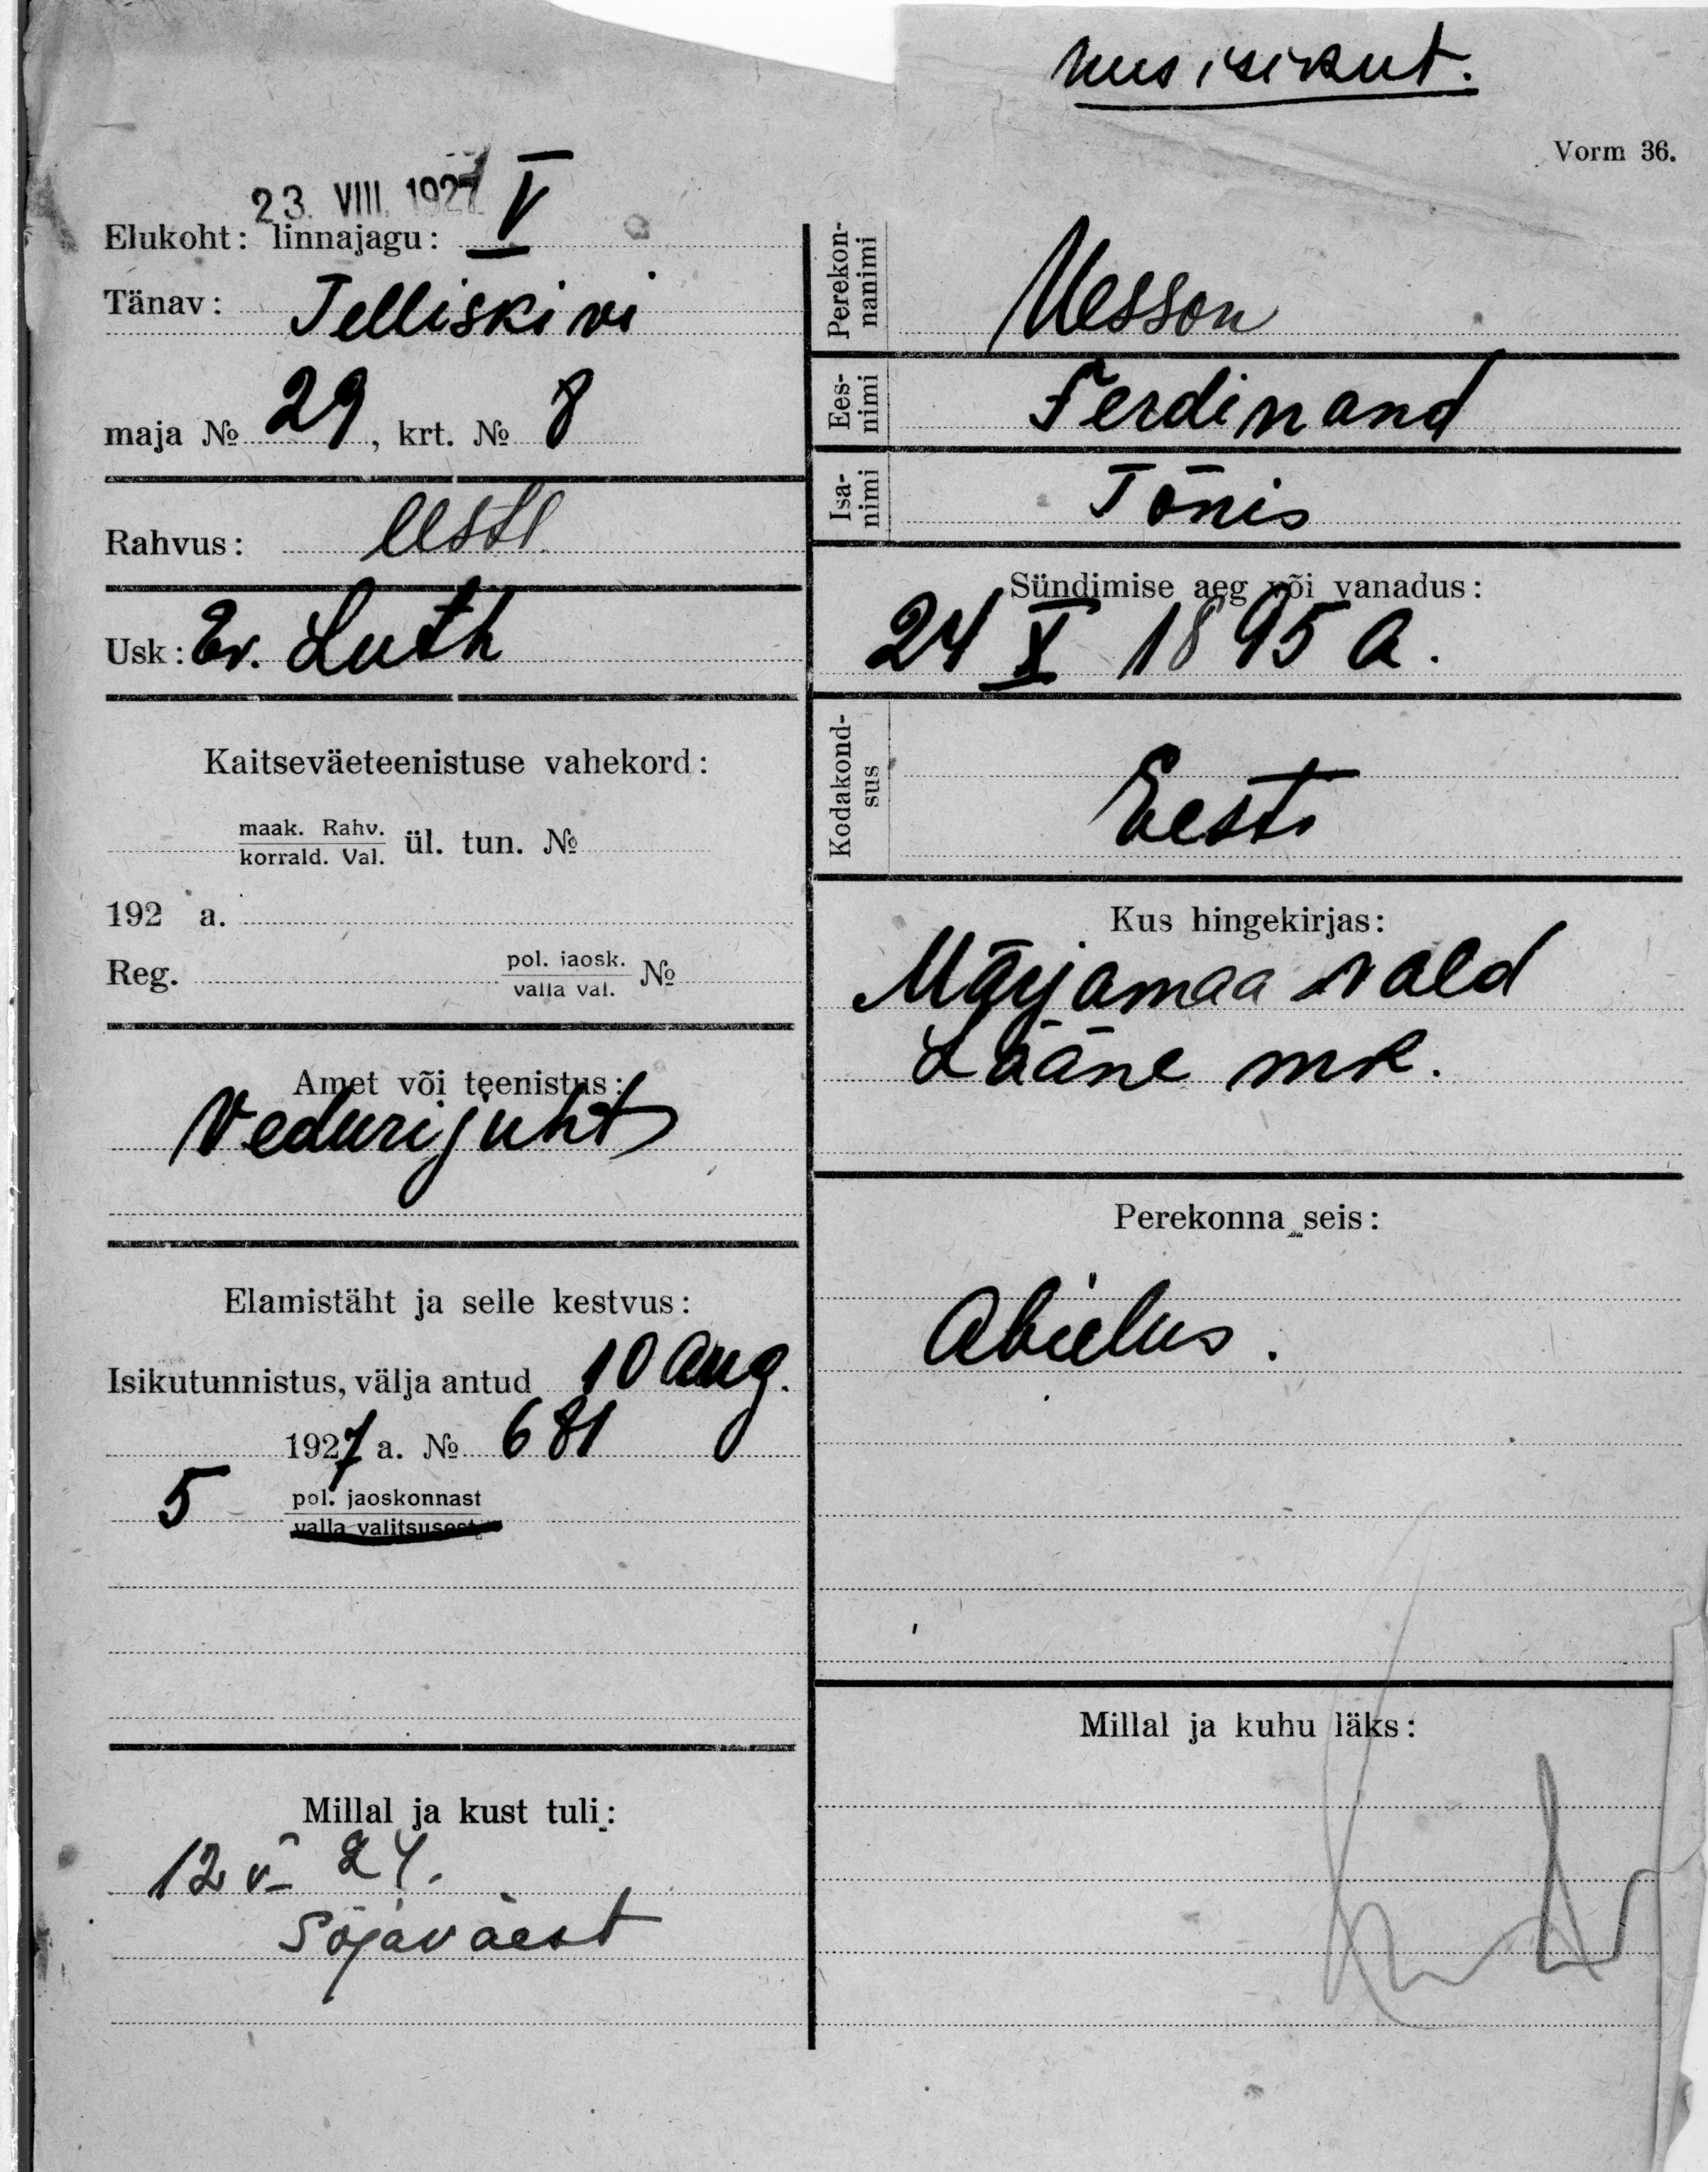 uus isikut.
Vorm 36.
23. VIII. 1927
Elukoht: linnajagu: V
Tänav: Telliskivi
maja № 29, krt. № 8
Rahvus: eesti
Usk: Ev. Luth
Kaitseväeteenistuse vahekord:
maak. Rahv.
korrald. Val. ül. tun. №
192 a.
Reg. pol. jaosk.
valla val. №
Amet või teenistus:
Vedurijuht
Elamistäht ja selle kestvus:
Isikutunnistus, välja antud 10 Aug.
1927 a. № 681
5 pol. jaoskonnast
valla valitsusest
Millal ja kust tuli:
12 V 24.
Sõjaväest
Perekon-
nanimi
Uesson
Ees-
nimi
Ferdinand
Isa-
nimi
Tõnis
Sündimise aeg või vanadus:
24 X 1895 a.
Kodakond-
sus
Eesti
Kus hingekirjas:
Märjamaa vald
Lääne mk.
Perekonna seis:
Abielus.
Millal ja kuhu läks: